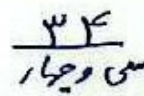 ۳۴
سی و چهار